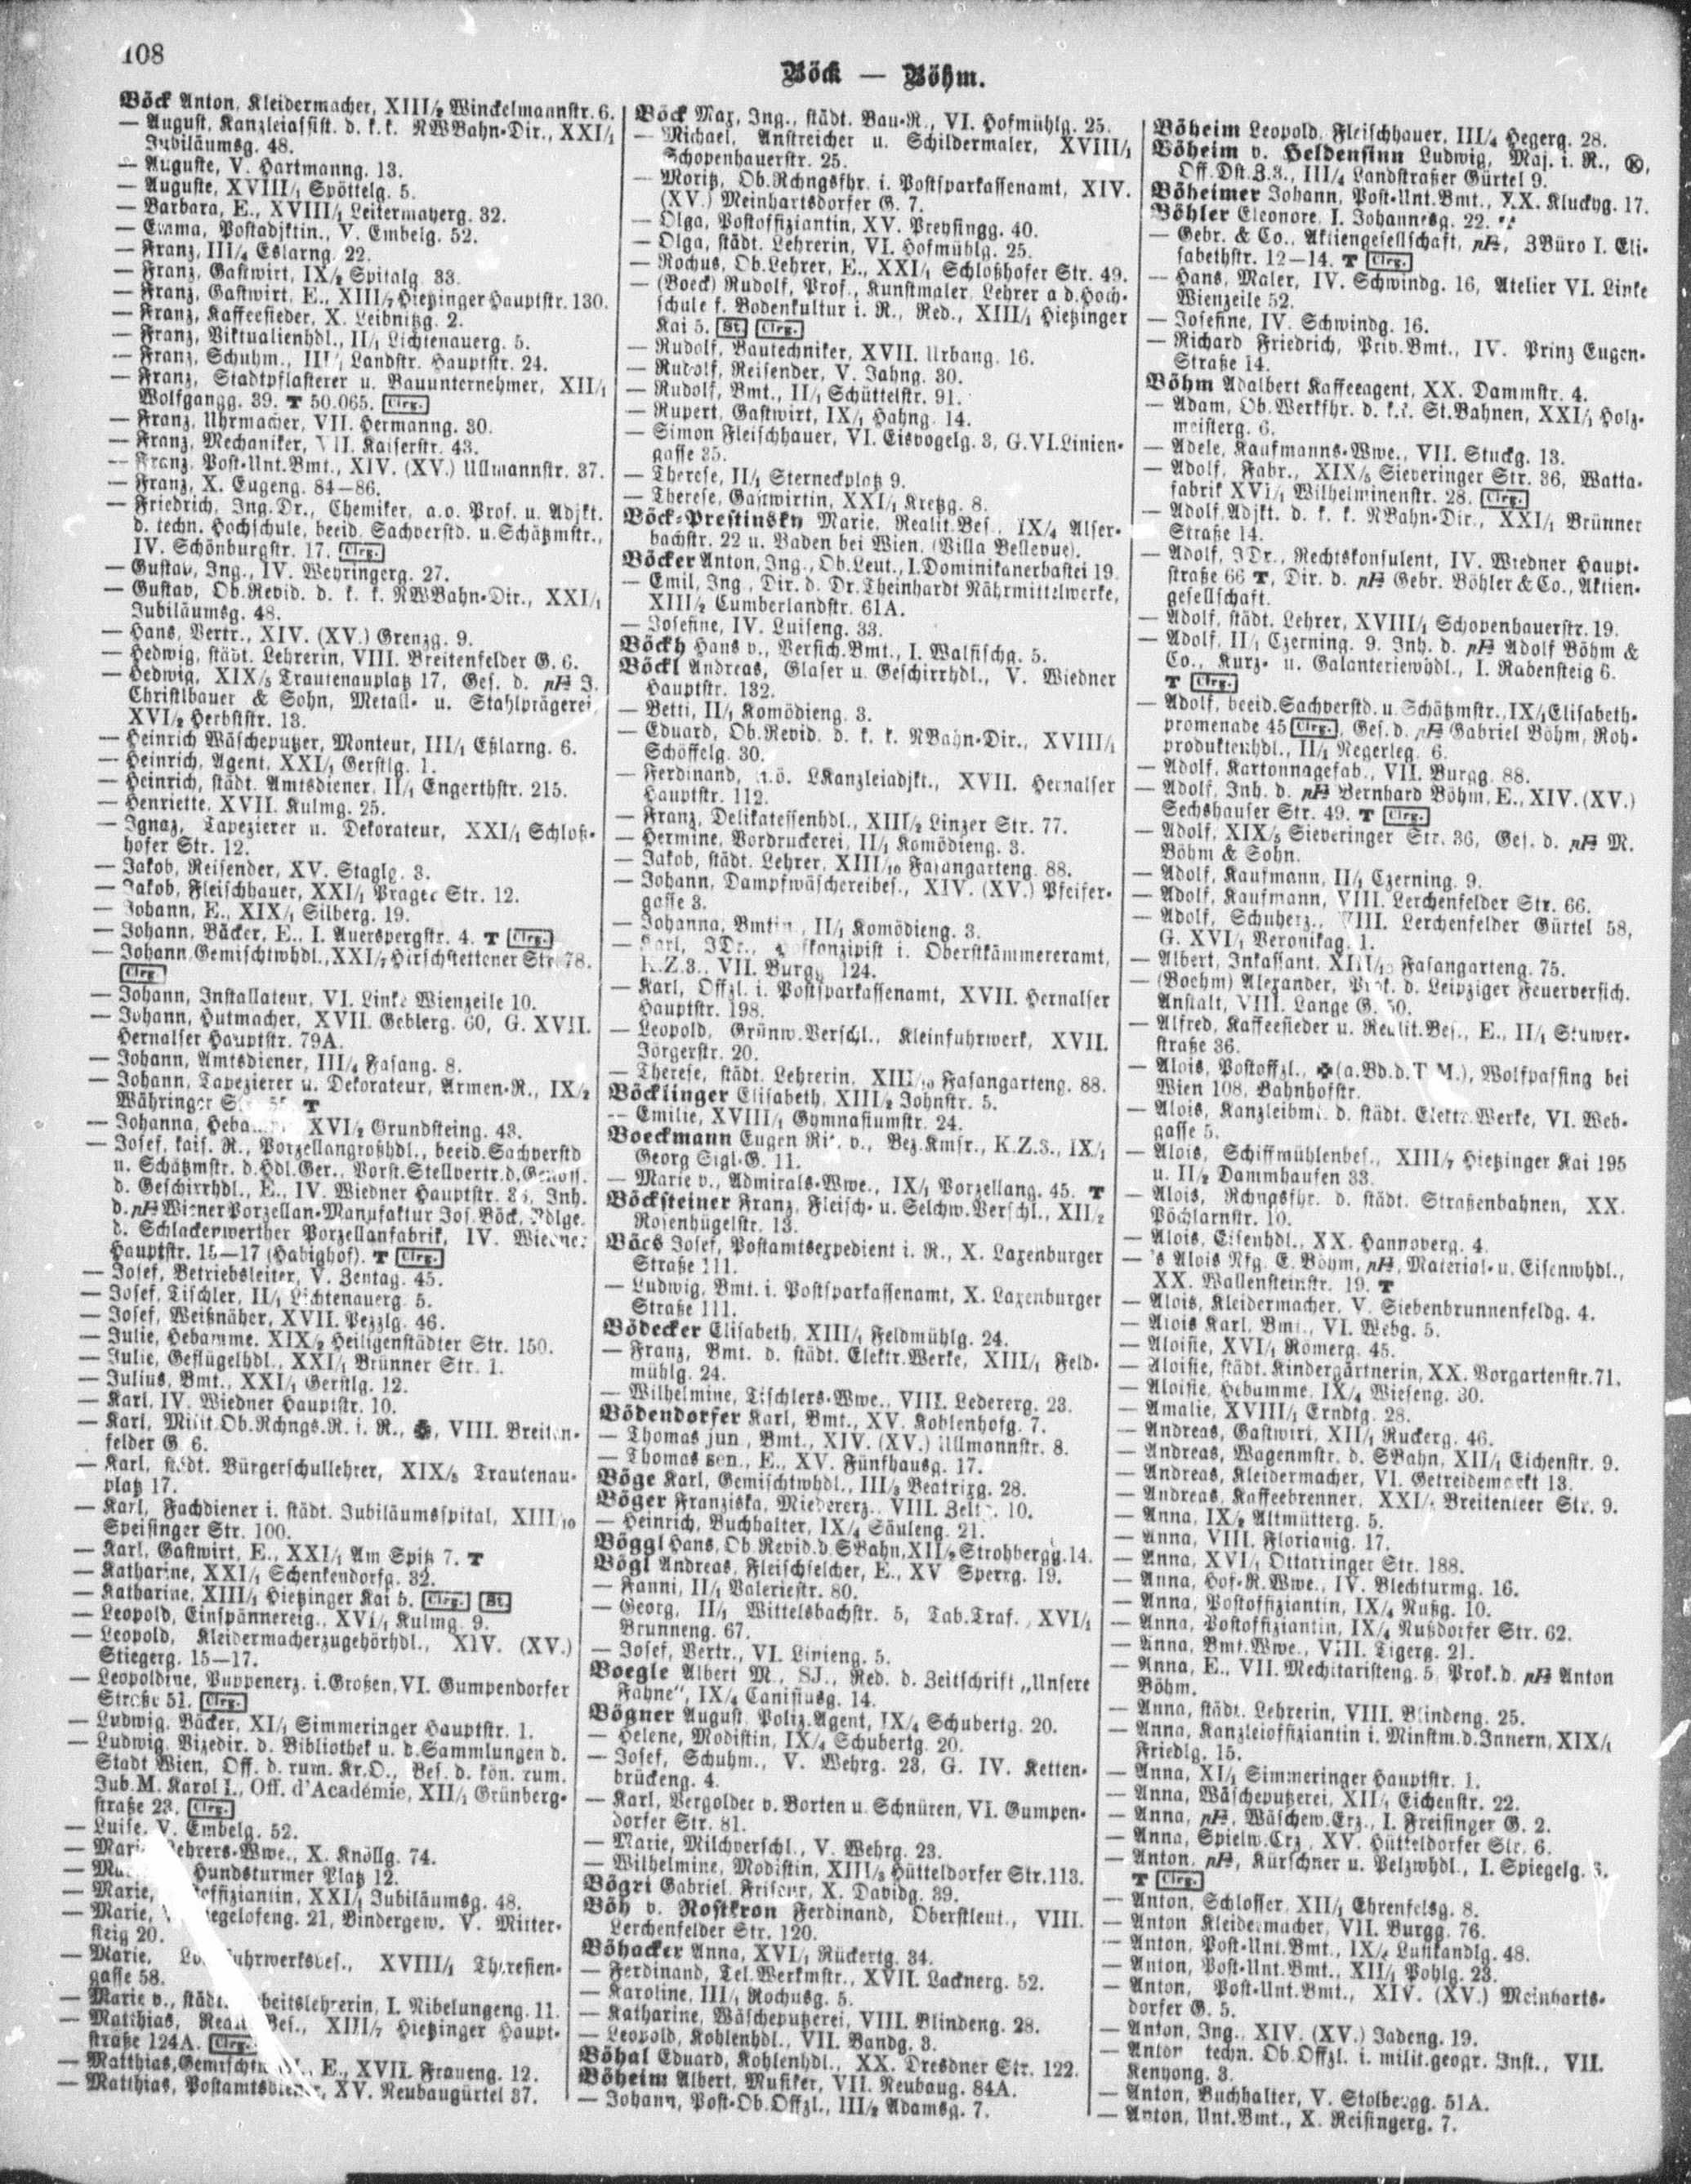 108
Böck — Böhm.
Böck Anton, Kleidermacher, XIII/2 Winckelmannstr. 6.
— August, Kanzleiassist. d. k. k. NWBahn-Dir., XXI/1
Jubiläumsg. 48.
— Auguste, V. Hartmanng. 13.
— Auguste, XVIII/1 Spöttelg. 5.
— Barbara, E., XVIII/1 Leitermayerg. 32.
— Emma, Postadjktin., V. Embelg. 52.
— Franz, III/4 Eslarng. 22.
— Franz, Gastwirt, IX/2 Spitalg. 33.
— Franz, Gastwirt, E., XIII/7 Hietzinger Hauptstr. 130.
— Franz, Kaffeesieder, X. Leibnitzg. 2.
— Franz, Viktualienhdl., II/1 Lichtenauerg. 5.
— Franz, Schuhm., Landstr. Hauptstr. 24.
— Franz, Stadtpflasterer u. Bauunternehmer, XII/1
Wolfgangg. 39. T 50.065. Clrg.
— Franz, Uhrmacher, VII. Hermanng. 30.
— Franz, Mechaniker, VII. Kaiserstr. 43.
— Franz, Post-Unt.Bmt., XIV. (XV.) Ullmannstr. 37.
— Franz, X. Eugeng. 84—86.
— Friedrich, Ing. Dr., Chemiker, a.o. Prof. u. Adjkt.
d. techn. Hochschule, beeid. Sachverstd. u. Schätzmstr.,
IV. Schönburgstr. 17. Clrg.
— Gustav, Ing., IV. Weyringerg. 27.
— Gustav, Ob.Revid. d. k. k. NWBahn-Dir., XXI/1
Jubiläumsg. 48.
— Hans, Vertr., XIV. (XV.) Grenzg. 9.
— Hedwig, städt. Lehrerin, VIII. Breitenfelder G. 6.
— Hedwig, XIX/5 Trautenauplatz 17, Ges. d. pH J.
Christlbauer & Sohn, Metall- u. Stahlprägerei,
XVI/2 Herbststr. 13.
— Heinrich Wäscheputzer, Monteur, III/1 Eßlarng. 6.
— Heinrich, Agent, XXI/1 Gerstlg. 1.
— Heinrich, städt. Amtsdiener, II/1 Engerthstr. 215.
— Henriette, XVII. Kulmg. 25.
— Ignaz, Tapezierer u. Dekorateur, XXI/1 Schloß-
hofer Str. 12.
— Jakob, Reisender, XV. Staglg. 3.
— Jakob, Fleischhauer, XXI/1 Prager Str. 12.
— Johann, E., XIX/1 Silberg. 19.
— Johann, Bäcker, E., I. Auerspergstr. 4. T Clrg.
— Johann, Gemischtwhdl., XXI/7 Hirschstettener Str. 78.
Clrg.
— Johann, Installateur, VI. Linke Wienzeile 10.
— Johann, Hutmacher, XVII. Geblerg. 60, G. XVII.
Hernalser Hauptstr. 79A.
— Johann, Amtsdiener, III/4 Fasang. 8.
— Johann, Tapezierer u. Dekorateur, Armen-R., IX/2
Währinger T
— Johanna, XVI/2 Grundsteing. 43.
— Josef, kais. R., Porzellangroßhdl., beeid. Sachverstd
u. Schätzmstr. d. Hdl.Ger., Vorst.Stellvertr. d. Genoss.
d. Geschirrhdl., E., IV. Wiedner Hauptstr. Inh.
d. pH Wiener Porzellan-Manufaktur Jos. Böck, Ndlge.
d. Schlackenwerther Porzellanfabrik, IV. Wiedner
Hauptstr. 15—17 (Habighof). T Clrg.
— Josef, Betriebsleiter, V. Zentag. 45.
— Josef, Tischler, II/1 Lichtenauerg. 5.
— Josef, Weißnäher, XVII. Pezzlg. 46.
— Julie, Hebamme, XIX/2 Heiligenstädter Str. 150.
— Julie, Geflügelhdl., XXI/1 Brünner Str. 1.
— Julius, Bmt., XXI/1 Gerstlg. 12.
— Karl, IV. Wiedner Hauptstr. 10.
— Karl, Milit.Ob.Rchngs.R. i. R., VIII. Breiten-
felder G. 6.
— Karl, städt. Bürgerschullehrer, XIX/5 Trautenau-
platz 17.
— Karl, Fachdiener i. städt. Jubiläumsspital, XIII/10
Speisinger Str. 100.
— Karl, Gastwirt, E., XXI/1 Am Spitz 7. T
— Katharine, XXI/1 Schenkendorfg. 32.
— Katharine, XIII/1 Hietzinger Kai 5. Clrg. St.
— Leopold, Einspännereig., XVI/1 Kulmg. 9.
— Leopold, Kleidermacherzugehörhdl., XIV. (XV.)
Stiegerg. 15—17.
— Leopoldine, Puppenerz. i. Großen, VI. Gumpendorfer
Straße 51. Clrg.
— Ludwig, Bäcker, XI/1 Simmeringer Hauptstr. 1.
— Ludwig, Vizedir. d. Bibliothek u. d. Sammlungen d.
Stadt Wien, Off. d. rum. Kr.O., Bes. d. kön. rum.
Jub.M. Karol I., Off. d'Académie, XII/1 Grünberg-
straße 23. Clrg.
— Luise, V. Embelg. 52.
— Lehrers-Wwe., X. Knöllg. 74.
— Hundsturmer Platz 12.
— Marie, XXI/1 Jubiläumsg. 48.
— Marie, 21, Bindergew. V. Mitter-
steig 20.
— Marie, XVIII/1 Theresien-
gasse 58.
— Marie v., städt. I. Nibelungeng. 11.
— Matthias, Realit.Bes., XIII/7 Hietzinger Haupt-
straße 124A. Clrg.
— Matthias, E., XVII. Fraueng. 12.
— Matthias, Postamtsdiener, XV. Neubaugürtel 37.
Böck Max, Ing., städt. Bau-R., VI. Hofmühlg. 25.
— Michael, Anstreicher u. Schildermaler, XVIII/1
Schopenhauerstr. 25.
— Moritz, Ob.Rchngsfhr. i. Postsparkassenamt, XIV.
(XV.) Meinhartsdorfer G. 7.
— Olga, Postoffiziantin, XV. Preysingg. 40.
— Olga, städt. Lehrerin, VI. Hofmühlg. 25.
— Rochus, Ob.Lehrer, E., XXI/1 Schloßhofer Str. 49.
— (Boeck) Rudolf, Prof., Kunstmaler, Lehrer a d. Hoch-
schule f. Bodenkultur i. R., Red., XIII/1 Hietzinger
Kai 5. St. Clrg.
— Rudolf, Bautechniker, XVII. Urbang. 16.
— Rudolf, Reisender, V. Jahng. 30.
— Rudolf, Bmt., II/1 Schüttelstr. 91.
— Rupert, Gastwirt, IX/1 Hahng. 14.
— Simon Fleischhauer, VI. Eisvogelg. 3, G. VI. Linien-
gasse 35.
— Therese, II/1 Sterneckplatz 9.
— Therese, Gastwirtin, XXI/1 Kretzg. 8.
Böck-Prestinsky Marie, Realit.Bes., IX/4 Alser-
bachstr. 22 u. Baden bei Wien. (Villa Bellevue).
Böcker Anton, Ing., Ob.Leut., I. Dominikanerbastei 19.
— Emil, Ing., Dir. d. Dr. Theinhardt Nährmittelwerke,
XIII/2 Cumberlandstr. 61A.
— Josefine, IV. Luiseng. 33.
Böckh Hans v., Versich.Bmt., I. Walfischg. 5.
Böckl Andreas, Glaser u. Geschirrhdl., V. Wiedner
Hauptstr. 132.
— Betti, II/1 Komödieng. 3.
— Eduard, Ob.Revid. d. k. k. NBahn-Dir., XVIII/1
Schöffelg. 30.
— Ferdinand, n.ö. LKanzleiadjkt., XVII. Hernalser
Hauptstr. 112.
— Franz, Delikatessenhdl., XIII/2 Linzer Str. 77.
— Hermine, Vordruckerei, II/1 Komödieng. 3.
— Jakob, städt. Lehrer, XIII/10 Fasangarteng. 88.
— Johann, Dampfwäschereibes., XIV. (XV.) Pfeifer-
gasse 3.
— Johanna, Bmtin., II/1 Komödieng. 3.
— Karl, JDr., Hofkonzipist i. Oberstkämmereramt,
K.Z.3., VII. Burgg. 124.
— Karl, Offzl. i. Postsparkassenamt, XVII. Hernalser
Hauptstr. 198.
— Leopold, Grünw.Verschl., Kleinfuhrwerk, XVII.
Jörgerstr. 20.
— Therese, städt. Lehrerin, XIII/10 Fasangarteng. 88.
Böcklinger Elisabeth, XIII/2 Johnstr. 5.
— Emilie, XVIII/1 Gymnasiumstr. 24.
Boeckmann Eugen Rit. v., Bez.Kmsr., K.Z.3., IX/1
Georg Sigl-G. 11.
— Marie v., Admirals-Wwe., IX/1 Porzellang. 45. T
Böcksteiner Franz, Fleisch- u. Selchw.Verschl., XII/2
Rosenhügelstr. 13.
Bäcs Josef, Postamtsexpedient i. R., X. Laxenburger
Straße 111.
— Ludwig, Bmt. i. Postsparkassenamt, X. Laxenburger
Straße 111.
Bödecker Elisabeth, XIII/1 Feldmühlg. 24.
— Franz, Bmt. d. städt. Elektr.Werke, XIII/1 Feld-
mühlg. 24.
— Wilhelmine, Tischlers-Wwe., VIII. Ledererg. 23.
Bödendorfer Karl, Bmt., XV. Kohlenhofg. 7.
— Thomas jun., Bmt., XIV. (XV.) Ullmannstr. 8.
— Thomas sen., E., XV. Fünfhausg. 17.
Böge Karl, Gemischtwhdl., III/3 Beatrixg. 28.
Böger Franziska, Miedererz., VIII. Zeltg. 10.
— Heinrich, Buchhalter, IX/4 Säuleng. 21.
Böggl Hans, Ob.Revid. d. SBahn, XII/2 Strohbergg. 14.
Bögl Andreas, Fleischselcher, E., XV Sperrg. 19.
— Fanni, II/1 Valeriestr. 80.
— Georg, II/1 Wittelsbachstr. 5, Tab.Traf., XVI/1
Brunneng. 67.
— Josef, Vertr., VI. Linieng. 5.
Boegle Albert M., SJ., Red. d. Zeitschrift „Unsere
Fahne", IX/4 Canisiusg. 14.
Bögner August, Poliz.Agent, IX/4 Schubertg. 20.
— Helene, Modistin, IX/4 Schubertg. 20.
— Josef, Schuhm., V. Wehrg. 23, G. IV. Ketten-
brückeng. 4.
— Karl, Vergolder v. Borten u. Schnüren, VI. Gumpen-
dorfer Str. 81.
— Marie, Milchverschl., V. Wehrg. 23.
— Wilhelmine, Modistin, XIII/3 Hütteldorfer Str. 113.
Bögri Gabriel, Friseur, X. Davidg. 39.
Böh v. Rostkron Ferdinand, Oberstleut., VIII.
Lerchenfelder Str. 120.
Böhacker Anna, XVI/1 Rückertg. 34.
— Ferdinand, Tel.Werkmstr., XVII. Lacknerg. 52.
— Karoline, III/1 Rochusg. 5.
— Katharine, Wäscheputzerei, VIII. Blindeng. 28.
— Leopold, Kohlenhdl., VII. Bandg. 3.
Böhal Eduard, Kohlenhdl., XX. Dresdner Str. 122.
Böheim Albert, Musiker, VII. Neubaug. 84A.
— Johann, Post-Ob.Offzl., III/2 Adamsg. 7.
Böheim Leopold, Fleischhauer, III/4 Hegerg. 28.
Böheim v. Heldensinn Ludwig, Maj. i. R.,
Off. Dst.Z.3., III/4 Landstraßer Gürtel 9.
Böheimer Johann, Post-Unt.Bmt., XX. Kluckyg. 17.
Böhler Eleonore, I. Johannesg. 22.
— Gebr. & Co., Aktiengesellschaft, pH, ZBüro I. Eli-
sabethstr. 12—14. T Clrg.
— Hans, Maler, IV. Schwindg. 16, Atelier VI. Linke
Wienzeile 52.
— Josefine, IV. Schwindg. 16.
— Richard Friedrich, Priv.Bmt., IV. Prinz Eugen-
Straße 14.
Böhm Adalbert Kaffeeagent, XX. Dammstr. 4.
— Adam, Ob.Werkfhr. d. k.k. St.Bahnen, XXI/1 Holz-
meisterg. 6.
— Adele, Kaufmanns-Wwe., VII. Stuckg. 13.
— Adolf, Fabr., XIX/5 Sieveringer Str. 36, Watta-
fabrik XVI/1 Wilhelminenstr. 28. Clrg.
— Adolf, Adjkt. d. k. k. NBahn-Dir., XXI/1 Brünner
Straße 14.
— Adolf, JDr., Rechtskonsulent, IV. Wiedner Haupt-
straße 66 T, Dir. d. pH Gebr. Böhler & Co., Aktien-
gesellschaft.
— Adolf, städt. Lehrer, XVIII/1 Schopenhauerstr. 19.
— Adolf, II/1 Czerning. 9. Inh. d. pH Adolf Böhm &
Co., Kurz- u. Galanteriewhdl., I. Rabensteig 6.
T Clrg.
— Adolf, beeid. Sachverstd. u. Schätzmstr., IX/1 Elisabeth-
promenade 45 Clrg., Ges. d. pH Gabriel Böhm, Roh-
produktenhdl., II/1 Negerleg. 6.
— Adolf, Kartonnagefab., VII. Burgg. 88.
— Adolf, Inh. d. pH Bernhard Böhm, E., XIV. (XV.)
Sechshauser Str. 49. T Clrg.
— Adolf, XIX/5 Sieveringer Str. 36, Ges. d. pH M.
Böhm & Sohn.
— Adolf, Kaufmann, II/1 Czerning. 9.
— Adolf, Kaufmann, VIII. Lerchenfelder Str. 66.
— Adolf, Schuherz., VIII. Lerchenfelder Gürtel 58,
G. XVI/1 Veronikag. 1.
— Albert, Inkassant, XIII/10 Fasangarteng. 75.
— (Boehm) Alexander, Prok. d. Leipziger Feuerversich.
Anstalt, VIII. Lange G. 50.
— Alfred, Kaffeesieder u. Realit.Bes., E., II/1 Stuwer-
straße 36.
— Alois, Postoffzl., (a. Bd. d. T. M.), Wolfpassing bei
Wien 108, Bahnhofstr.
— Alois, Kanzleibmt. d. städt. Elektr.Werke, VI. Web-
gasse 5.
— Alois, Schiffmühlenbes., XIII/7 Hietzinger Kai 195
u. II/2 Dammhaufen 33.
— Alois, Rchngsfhr. d. städt. Straßenbahnen, XX.
Pöchlarnstr. 10.
— Alois, Eisenhdl., XX. Hannoverg. 4.
— 's Alois Nfg. E. Böhm, pH, Material- u. Eisenwhdl.,
XX. Wallensteinstr. 19. T
— Alois, Kleidermacher, V. Siebenbrunnenfeldg. 4.
— Alois Karl, Bmt., VI. Webg. 5.
— Aloisie, XVI/1 Römerg. 45.
— Aloisie, städt. Kindergärtnerin, XX. Vorgartenstr. 71.
— Aloisie, Hebamme, IX/4 Wieseng. 30.
— Amalie, XVIII/1 Erndtg. 28.
— Andreas, Gastwirt, XII/1 Ruckerg. 46.
— Andreas, Wagenmstr. d. SBahn, XII/1 Eichenstr. 9.
— Andreas, Kleidermacher, VI. Getreidemarkt 13.
— Andreas, Kaffeebrenner, Breitenleer Str. 9.
— Anna, IX/2 Altmütterg. 5.
— Anna, VIII. Florianig. 17.
— Anna, XVI/1 Ottakringer Str. 188.
— Anna, Hof-R.Wwe., IV. Blechturmg. 16.
— Anna, Postoffiziantin, IX/4 Nußg. 10.
— Anna, Postoffiziantin, IX/4 Nußdorfer Str. 62.
— Anna, Bmt.Wwe., VIII. Tigerg. 21.
— Anna, E., VII. Mechitaristeng. 5, Prok. d. pH Anton
Böhm.
— Anna, städt. Lehrerin, VIII. Blindeng. 25.
— Anna, Kanzleioffiziantin i. Minstm. d. Innern, XIX/1
Friedlg. 15.
— Anna, XI/1 Simmeringer Hauptstr. 1.
— Anna, Wäscheputzerei, XII/1 Eichenstr. 22.
— Anna, pH, Wäschew.Erz., I. Freisinger G. 2.
— Anna, Spielw.Erz., XV. Hütteldorfer Str. 6.
— Anton, pH, Kürschner u. Pelzwhdl., I. Spiegelg.
T Clrg.
— Anton, Schlosser, XII/1 Ehrenfelsg. 8.
— Anton Kleidermacher, VII. Burgg. 76.
— Anton, Post-Unt.Bmt., Lustkandlg. 48.
— Anton, Post-Unt.Bmt., XII/1 Pohlg. 23.
— Anton, Post-Unt.Bmt., XIV. (XV.) Meinharts-
dorfer G. 5.
— Anton, Ing., XIV. (XV.) Jadeng. 19.
— Anton techn. Ob.Offzl. i. milit.geogr. Inst., VII.
Kenyong. 3.
— Anton, Buchhalter, V. Stolbergg. 51A.
— Anton, Unt.Bmt., X. Reisingerg. 7.